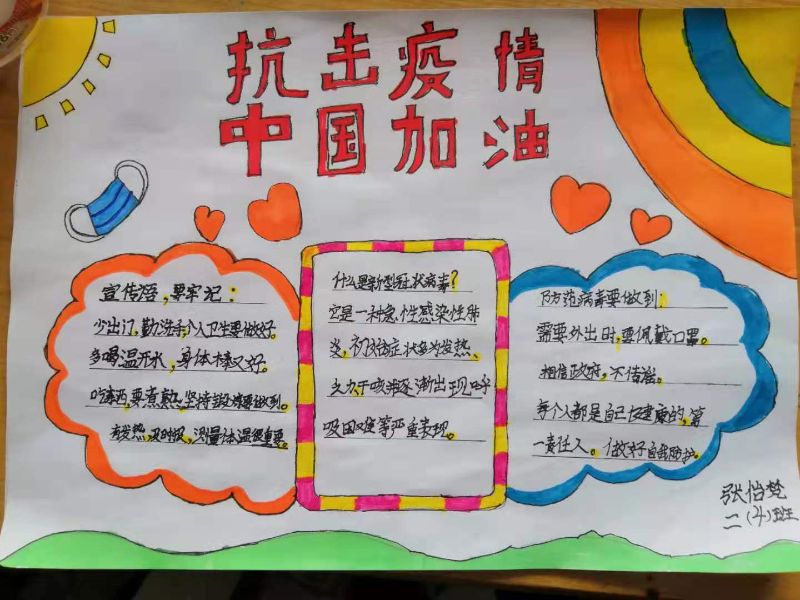 抗击疫情
中国加油
宣传语,要牢记:
少出门,勤洗手,个人卫生要做好。
多喝温开水,身体棒又好。
吃东西,要煮熟,坚持锻炼要做到。
有发热,及时报,测量体温很重要。
什么是新型冠状病毒?
它是一种急性感染性肺
炎,初始症状多为发热、
乏力干咳,逐渐出现呼
吸困难等严重表现。
防范病毒要做到:
需要外出时,要佩戴口罩。
相信政府,不信谣。
每个人都是自己健康的,第
一责任人。做好自我防护。
张怡梵
二(4)班